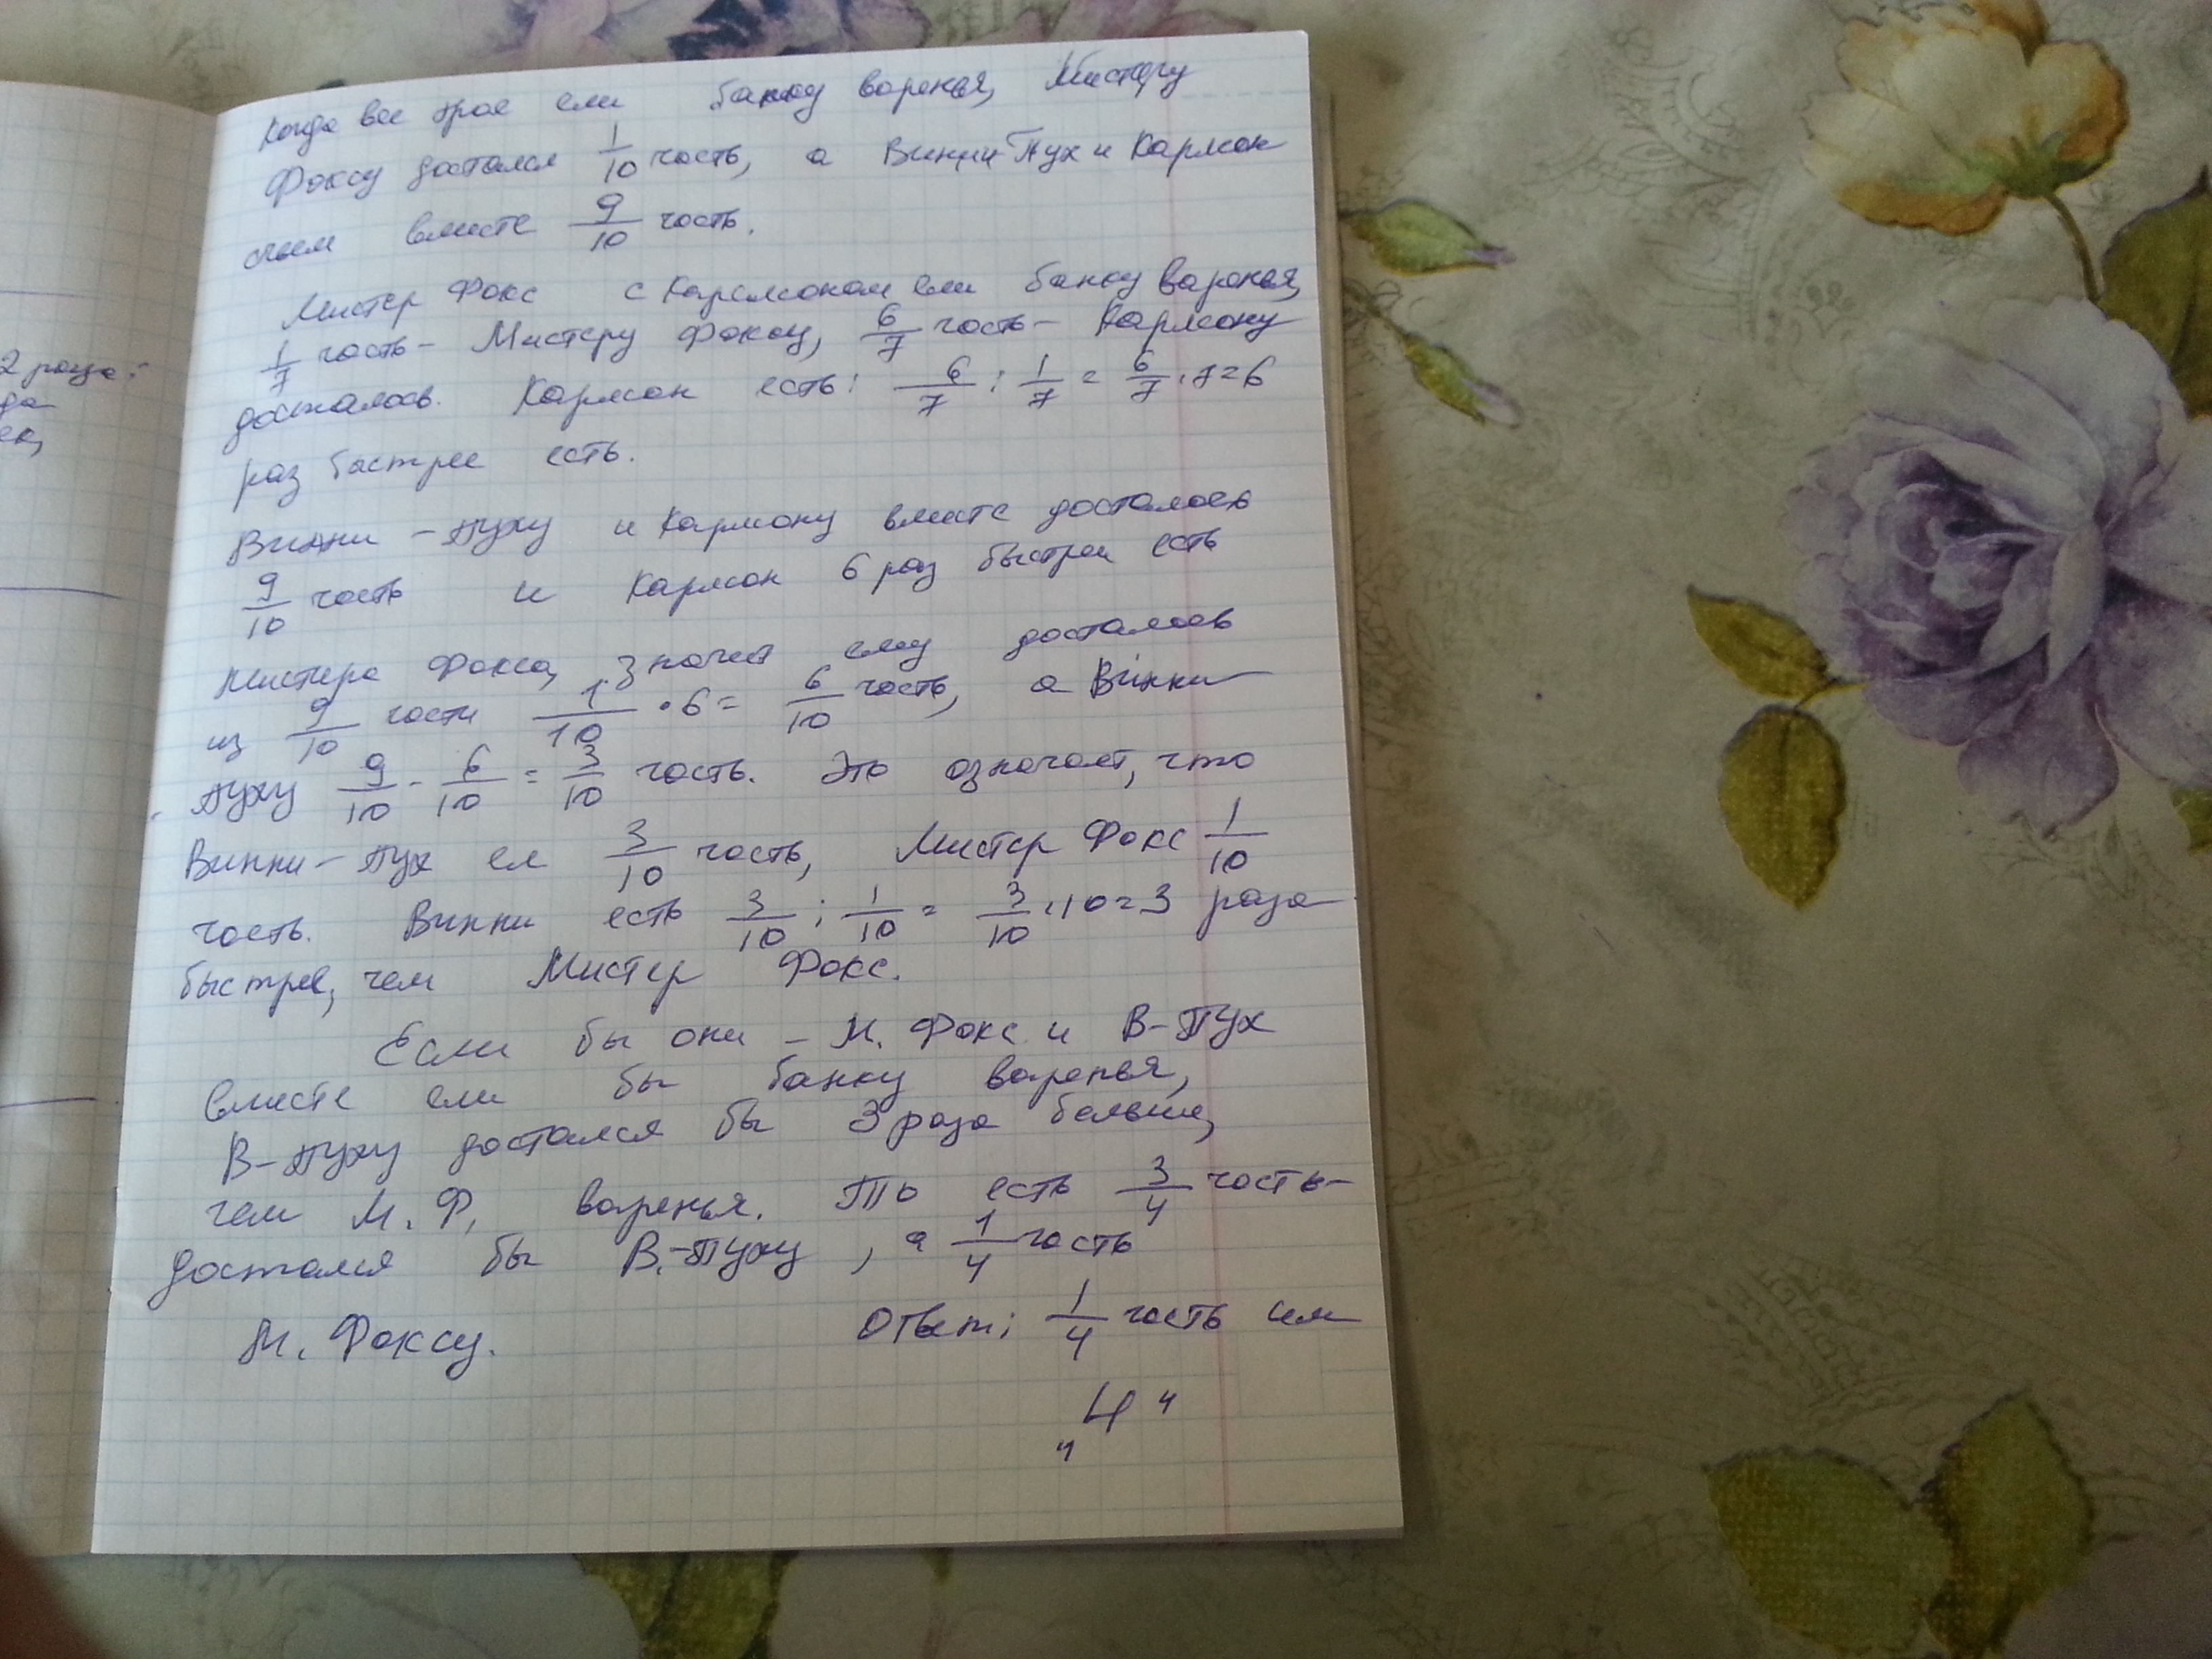 2 раза:
да
ек,
Когда все трое ели банку варенья, Мистеру
Фоксу достался 1/10 часть, а Винни-Пух и Карлсон
съели вместе 9/10 часть.
Мистер Фокс с Карлсоном ели банку варенья,
1/7 часть - Мистеру Фоксу, 6/7 часть - Карлсону
досталось. Карлсон есть: 6/7 : 1/7 = 6/7 · 7 = 6
раз быстрее есть.
Винни-Пуху и Карлсону вместе досталось
9/10 часть и Карлсон 6 раз быстрей есть
Мистера Фокса, значит ему досталось
из 9/10 части 1/10 · 6 = 6/10 часть, а Винни
Пуху 9/10 - 6/10 = 3/10 часть. Это означает, что
Винни-Пух ел 3/10 часть, Мистер Фокс 1/10
часть. Винни есть 3/10 : 1/10 = 3/10 · 10 = 3 раза
быстрее, чем Мистер Фокс.
Если бы они - М. Фокс и В-Пух
вместе ели бы банку варенья,
В-Пуху достался бы 3 раза больше,
чем М. Ф. варенья. То есть 3/4 часть-
достался бы В.-Пуху, а 1/4 часть
М. Фоксу. Ответ: 1/4 часть или
„4"